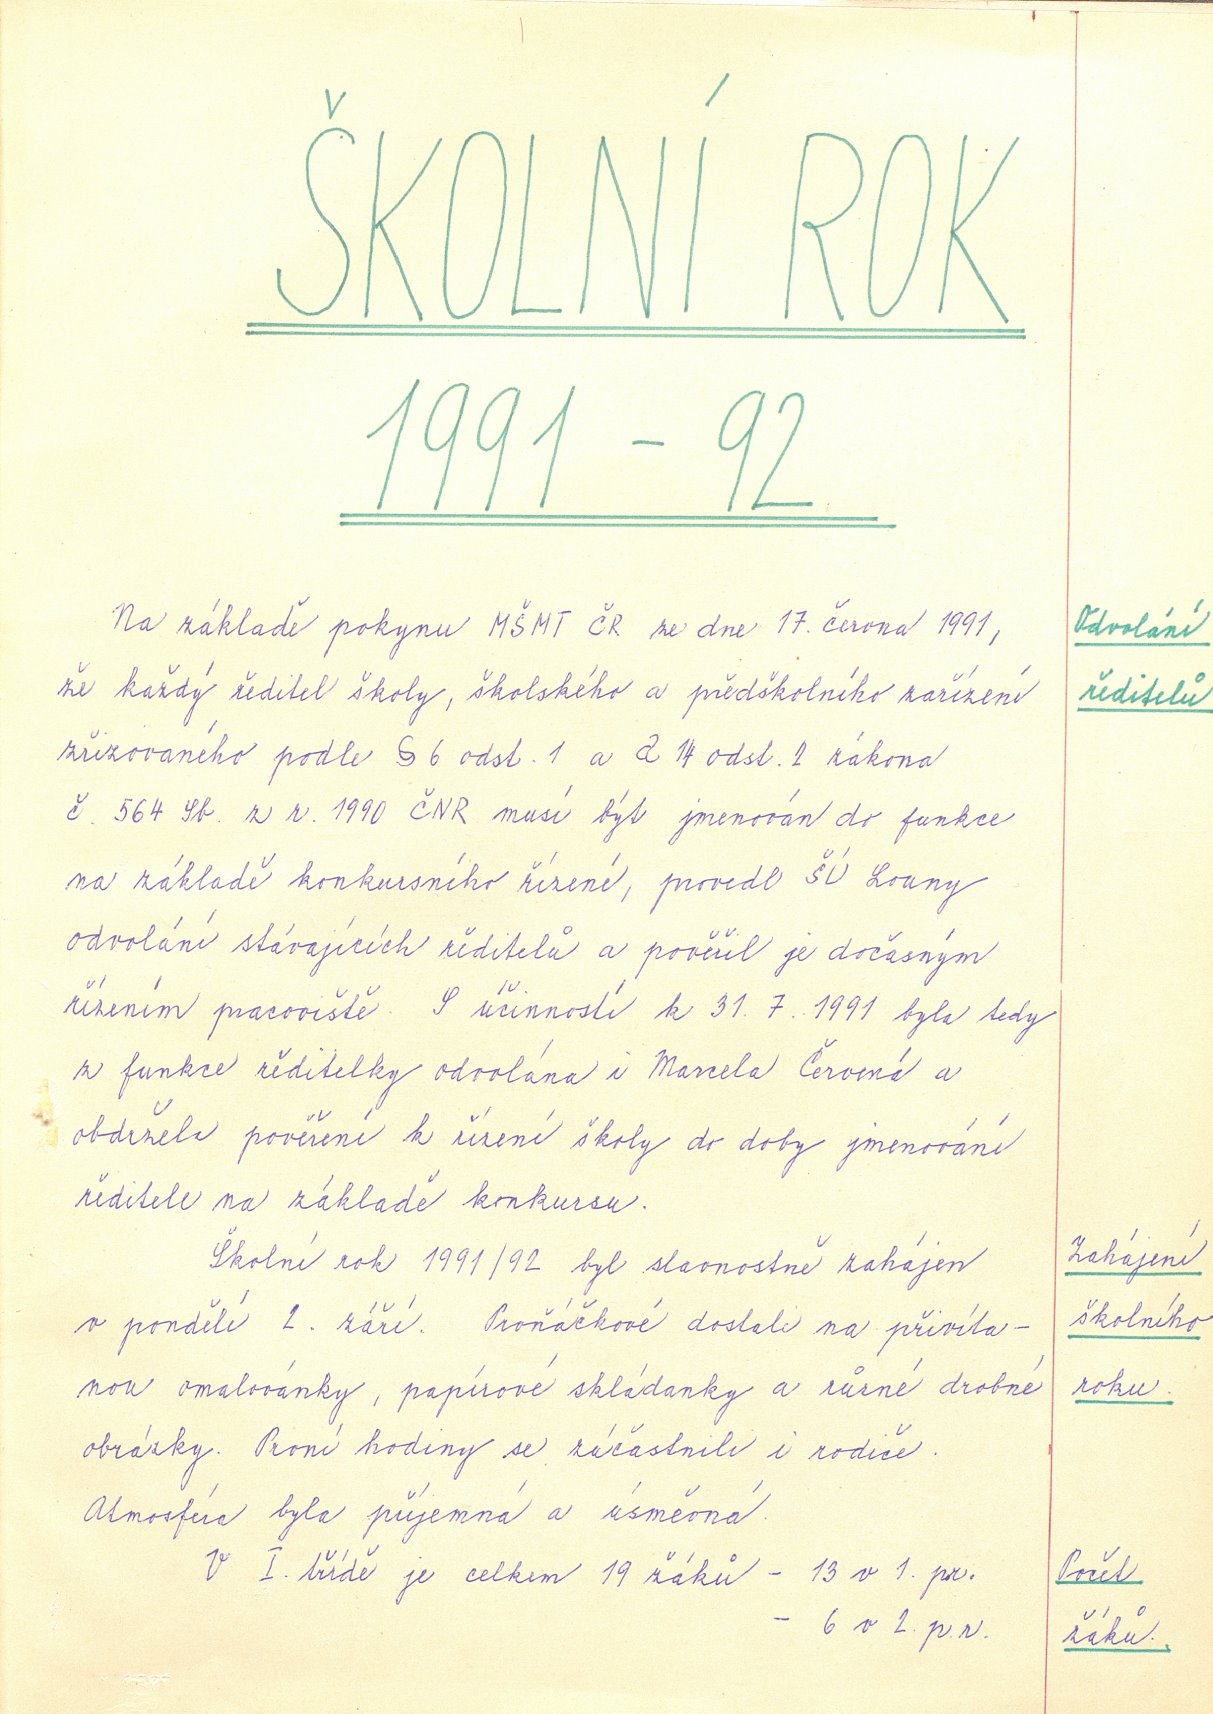 ŠKOLNÍ ROK
1991 - 92
Na základě pokynu MŠMT ČR ze dne 17. června 1991,
Odvolání
že každý ředitel školy, školského a předškolního zařízení
ředitelů
zřizovaného podle § 6 odst. 1 a § 14 odst. 2 zákona
č. 564 Sb. z r. 1990 ČNR musí být jmenován do funkce
na základě konkursního řízení, provedl ŠÚ Louny
odvolání stávajících ředitelů a pověřil je dočasným
řízením pracoviště. S účinností k 31. 7. 1991 byla tedy
z funkce ředitelky odvolána i Marcela Červená a
obdržela pověření k řízení školy do doby jmenování
ředitele na základě konkursu.
Školní rok 1991/92 byl slavnostně zahájen
Zahájení
v pondělí 2. září. Prvňáčkové dostali na přivíta-
školního
nou omalovánky, papírové skládanky a různé drobné
roku.
obrázky. První hodiny se zúčastnili i rodiče.
Atmosféra byla příjemná a úsměvná.
V I. třídě je celkem 19 žáků - 13 v 1. pr.
Počet
- 6 v 2. p.r.
žáků.